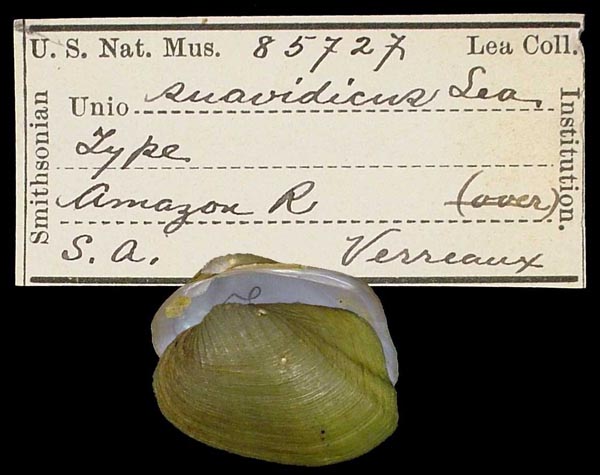 U. S. Nat. Mus. 85727 Lea Coll.
Unio suavidicus Lea
Type
Amazon R (over)
S. A. Verreaux
Smithsonian
Institution.